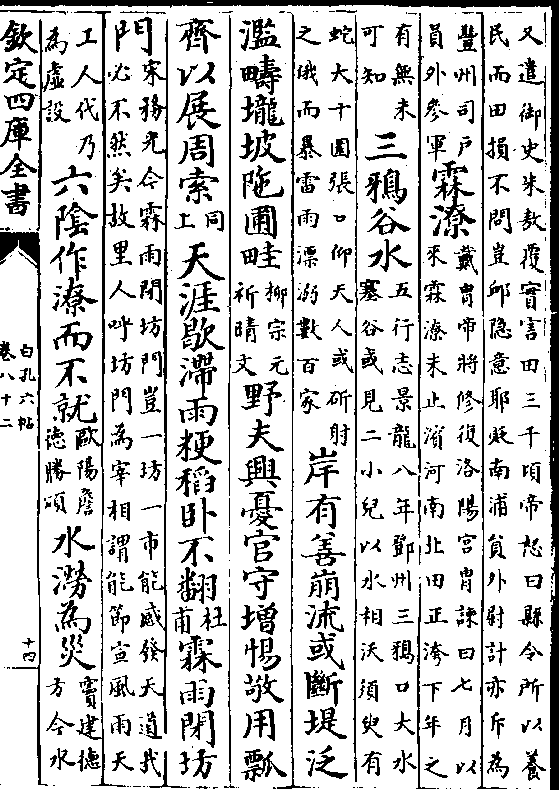 又遣御史朱敖覆實害田三千頃帝恕曰縣令所以養
民而田損不問豈卹隐意耶貶南浦員外尉計亦斥為
豐州司戸
員外參軍
霖潦
戴胄帝將修復洛陽宫胄諫曰七月以
來霖潦未止濱河南北田正洿下年之
有無未
可知
三鵶谷水
五行志景龍八年鄧州三鵶口大水
塞谷或見二小兒以水相沃須臾有
蛇大十圍張口仰天人或斫射
之俄而暴雷雨漂溺數百家
岸有善崩流或斷堤泛
濫疇壠坡陁圃畦
柳宗元
祈晴文
野夫興憂官守增惕敬用瓢
齊以展周索
同
上
天涯歇滯雨粳稻卧不翻
杜
甫
霖雨閉坊
門
宋務光今霖雨閉坊門豈一坊一市能感發天道我
必不然矣故里人呼坊門為宰相謂能節宣風雨天
工人代乃
為虚設
六隂作潦而不就
歐陽詹
德勝頌
水澇為災
竇建德
方今水
欽定四庫全書
白孔六帖
卷八十二
十四